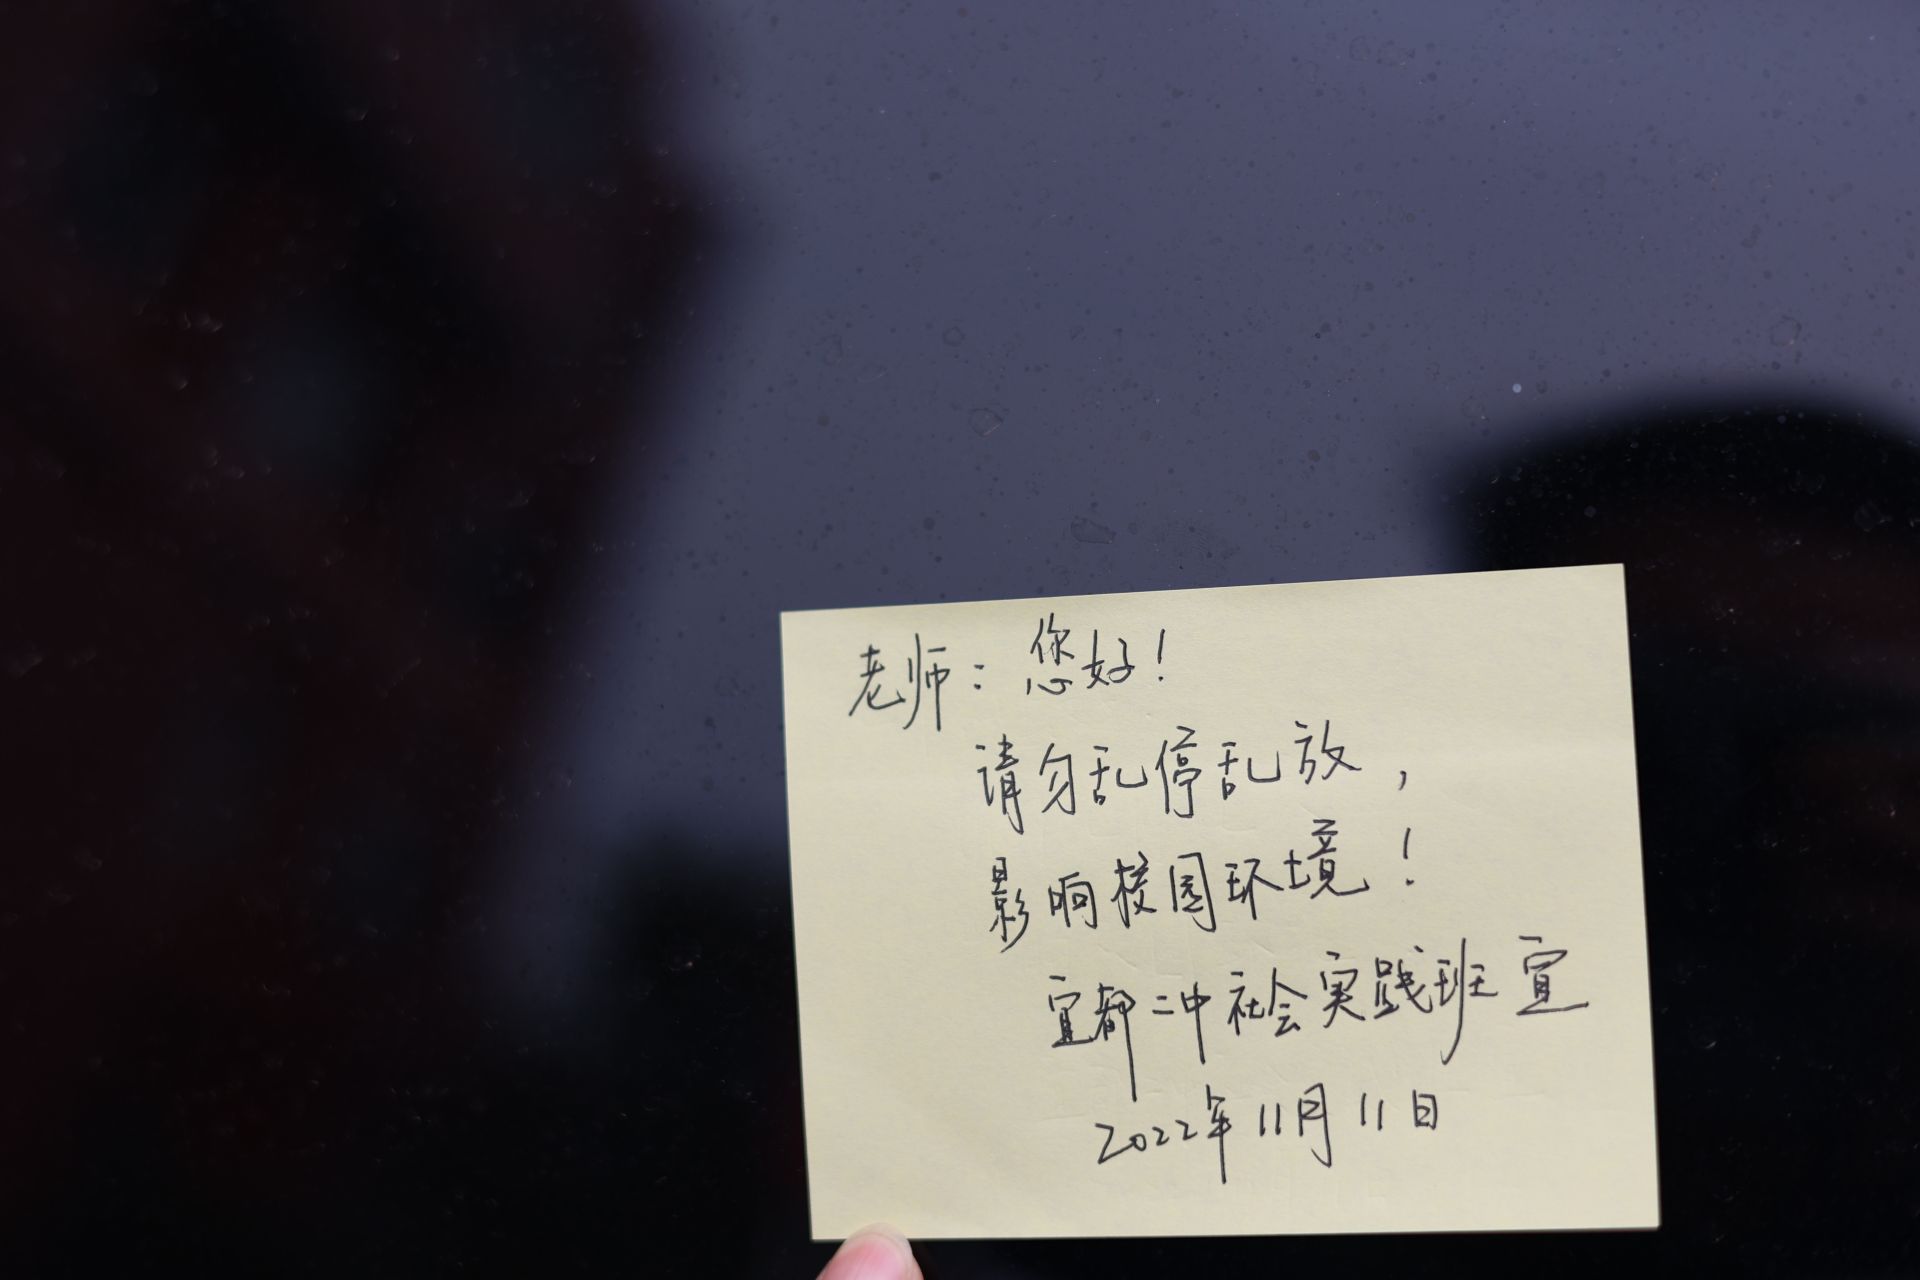 老师：您好！
请勿乱停乱放，
影响校园环境！
宜都二中社会实践班宣
2022年11月11日